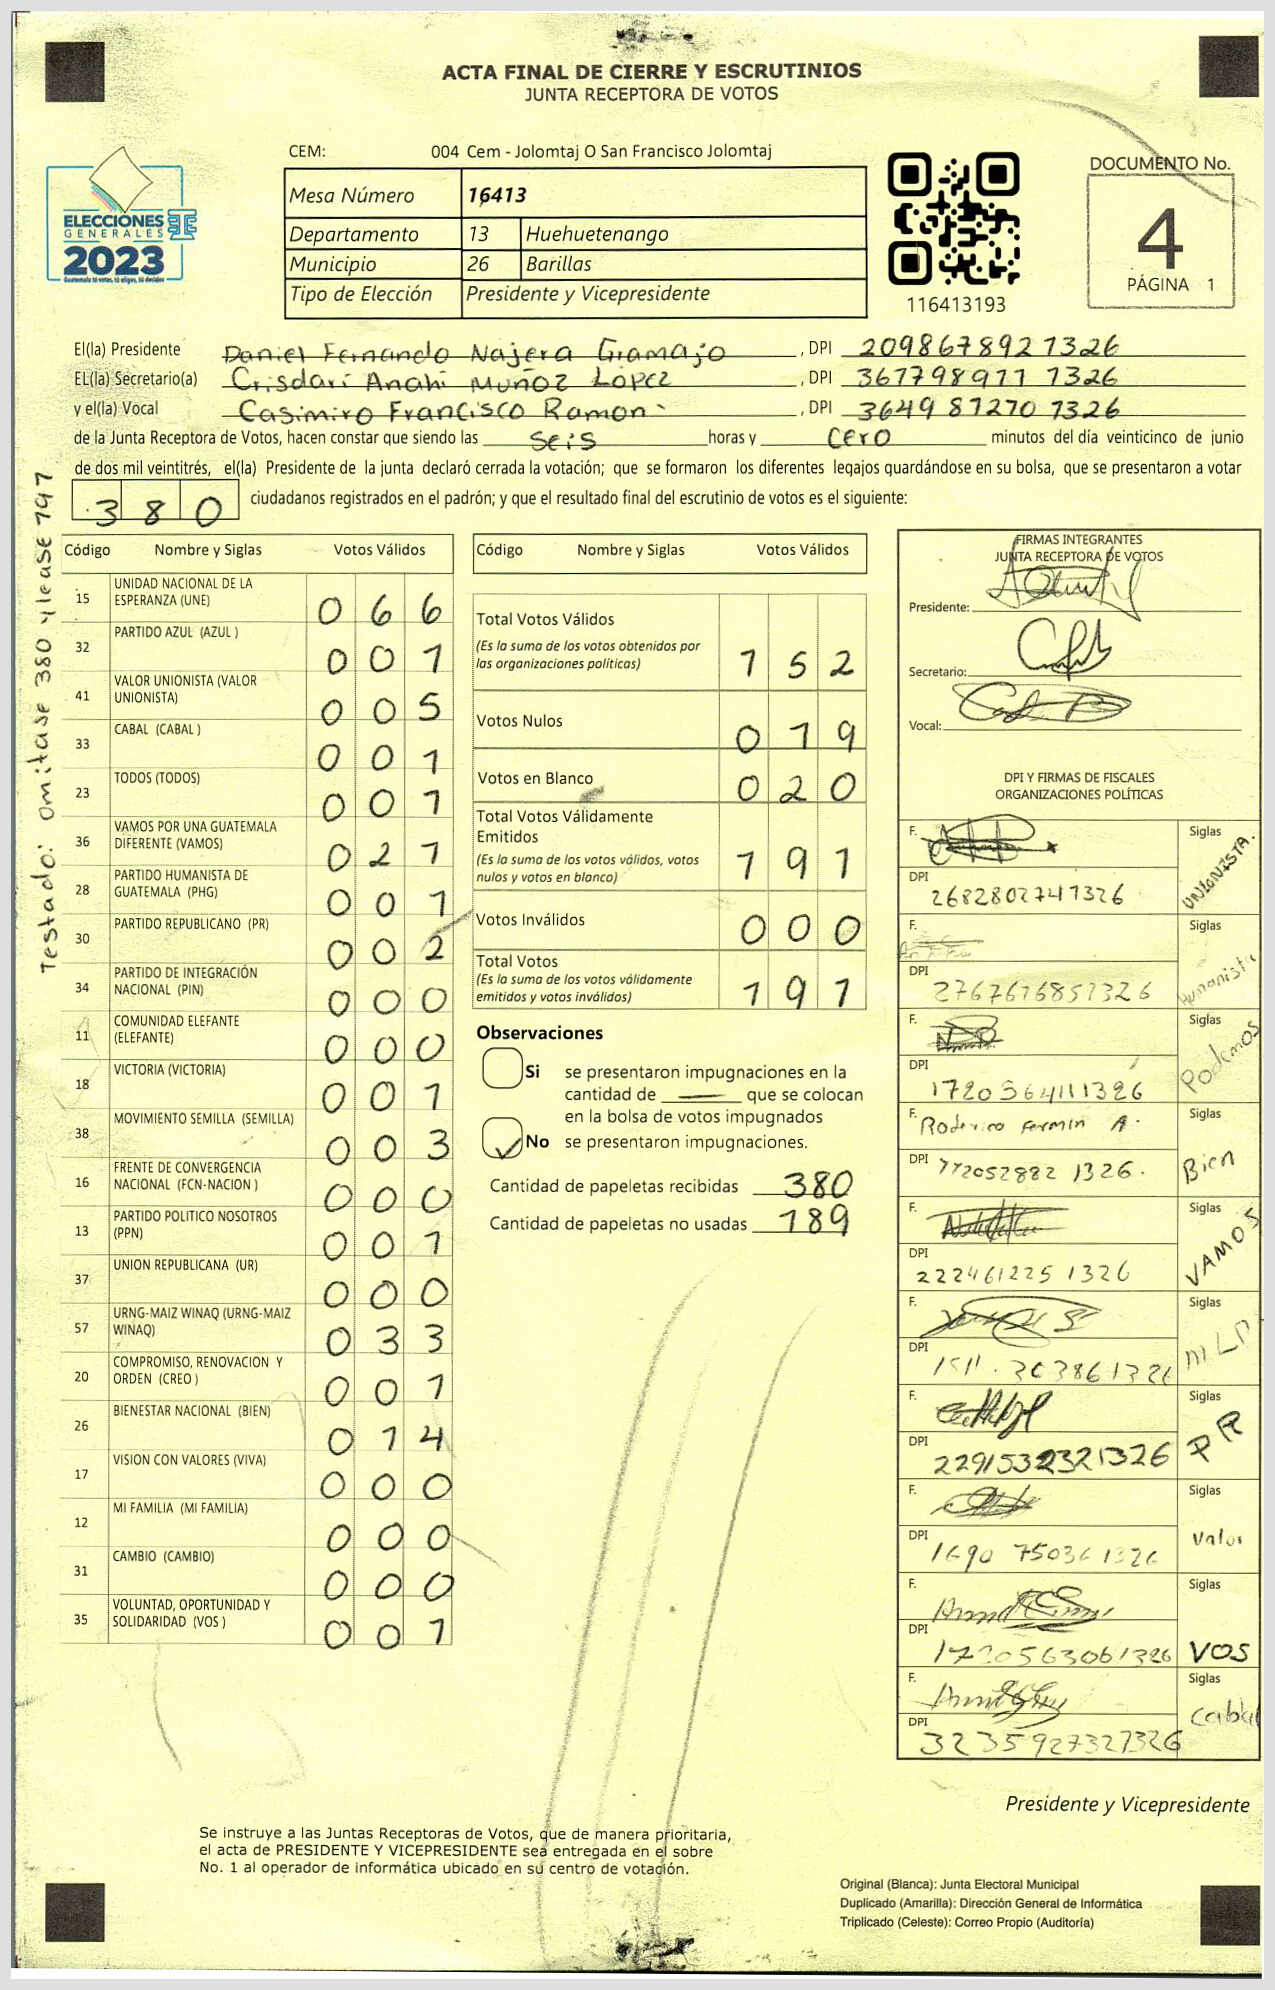 ACTA FINAL DE CIERRE Y ESCRUTINIOS
JUNTA RECEPTORA DE VOTOS
ELECCIONES
GENERALES
2023
CEM: 004 Cem - Jolomtaj O San Francisco Jolomtaj
Mesa Número 16413
Departamento 13 Huehuetenango
Municipio 26 Barillas
Tipo de Elección Presidente y Vicepresidente
116413193
DOCUMENTO No.
4
PÁGINA 1
El(la) Presidente Daniel Fernando Najera Gramajo, DPI 2098678921326
EL(la) Secretario(a) Crisdari Anahi Muñoz López, DPI 367798977 1326
y el(la) Vocal Casimiro Francisco Ramon, DPI 3649 87270 1326
de la Junta Receptora de Votos, hacen constar que siendo las seis horas y cero minutos del día veinticinco de junio
de dos mil veintitrés, el(la) Presidente de la junta declaró cerrada la votación; que se formaron los diferentes legajos guardándose en su bolsa, que se presentaron a votar
380 ciudadanos registrados en el padrón; y que el resultado final del escrutinio de votos es el siguiente:
Testado: omitase 380 y lease 191
Código Nombre y Siglas Votos Válidos
15 UNIDAD NACIONAL DE LA ESPERANZA (UNE) 066
32 PARTIDO AZUL (AZUL ) 001
41 VALOR UNIONISTA (VALOR UNIONISTA) 005
33 CABAL (CABAL ) 001
23 TODOS (TODOS) 001
36 VAMOS POR UNA GUATEMALA DIFERENTE (VAMOS) 021
28 PARTIDO HUMANISTA DE GUATEMALA (PHG) 001
30 PARTIDO REPUBLICANO (PR) 002
34 PARTIDO DE INTEGRACIÓN NACIONAL (PIN) 000
11 COMUNIDAD ELEFANTE (ELEFANTE) 000
18 VICTORIA (VICTORIA) 001
38 MOVIMIENTO SEMILLA (SEMILLA) 003
16 FRENTE DE CONVERGENCIA NACIONAL (FCN-NACION ) 000
13 PARTIDO POLITICO NOSOTROS (PPN) 001
37 UNION REPUBLICANA (UR) 000
57 URNG-MAIZ WINAQ (URNG-MAIZ WINAQ) 033
20 COMPROMISO, RENOVACION Y ORDEN (CREO ) 001
26 BIENESTAR NACIONAL (BIEN) 014
17 VISION CON VALORES (VIVA) 000
12 MI FAMILIA (MI FAMILIA) 000
31 CAMBIO (CAMBIO) 000
35 VOLUNTAD, OPORTUNIDAD Y SOLIDARIDAD (VOS ) 001
Código Nombre y Siglas Votos Válidos
Total Votos Válidos 152
(Es la suma de los votos obtenidos por
las organizaciones políticas)
Votos Nulos 019
Votos en Blanco 020
Total Votos Válidamente
Emitidos 191
(Es la suma de los votos válidos, votos
nulos y votos en blanco)
Votos Inválidos 000
Total Votos 191
(Es la suma de los votos válidamente
emitidos y votos inválidos)
Observaciones
Si se presentaron impugnaciones en la
cantidad de que se colocan
en la bolsa de votos impugnados
No se presentaron impugnaciones.
Cantidad de papeletas recibidas 380
Cantidad de papeletas no usadas 189
FIRMAS INTEGRANTES
JUNTA RECEPTORA DE VOTOS
Presidente:
Secretario:
Vocal:
DPI Y FIRMAS DE FISCALES
ORGANIZACIONES POLÍTICAS
F. Siglas UNIONISTA.
DPI 2682802747326
F. Siglas Humanista
DPI 2767676851326
F. Siglas Podemos
DPI 1720564111326
F. Roderico Fermin A. Siglas Bien
DPI 772052882 1326.
F. Siglas VAMOS
DPI 222461225 1326
F. Siglas MLP
DPI
F. Siglas PR
DPI 2291532321326
F. Siglas Valor
DPI 1690 750361326
F. Siglas VOS
DPI 1720563061326
F. Siglas Cabal
DPI 3235927321326
Presidente y Vicepresidente
Se instruye a las Juntas Receptoras de Votos, que de manera prioritaria,
el acta de PRESIDENTE Y VICEPRESIDENTE sea entregada en el sobre
No. 1 al operador de informática ubicado en su centro de votación.
Original (Blanca): Junta Electoral Municipal
Duplicado (Amarilla): Dirección General de Informática
Triplicado (Celeste): Correo Propio (Auditoría)